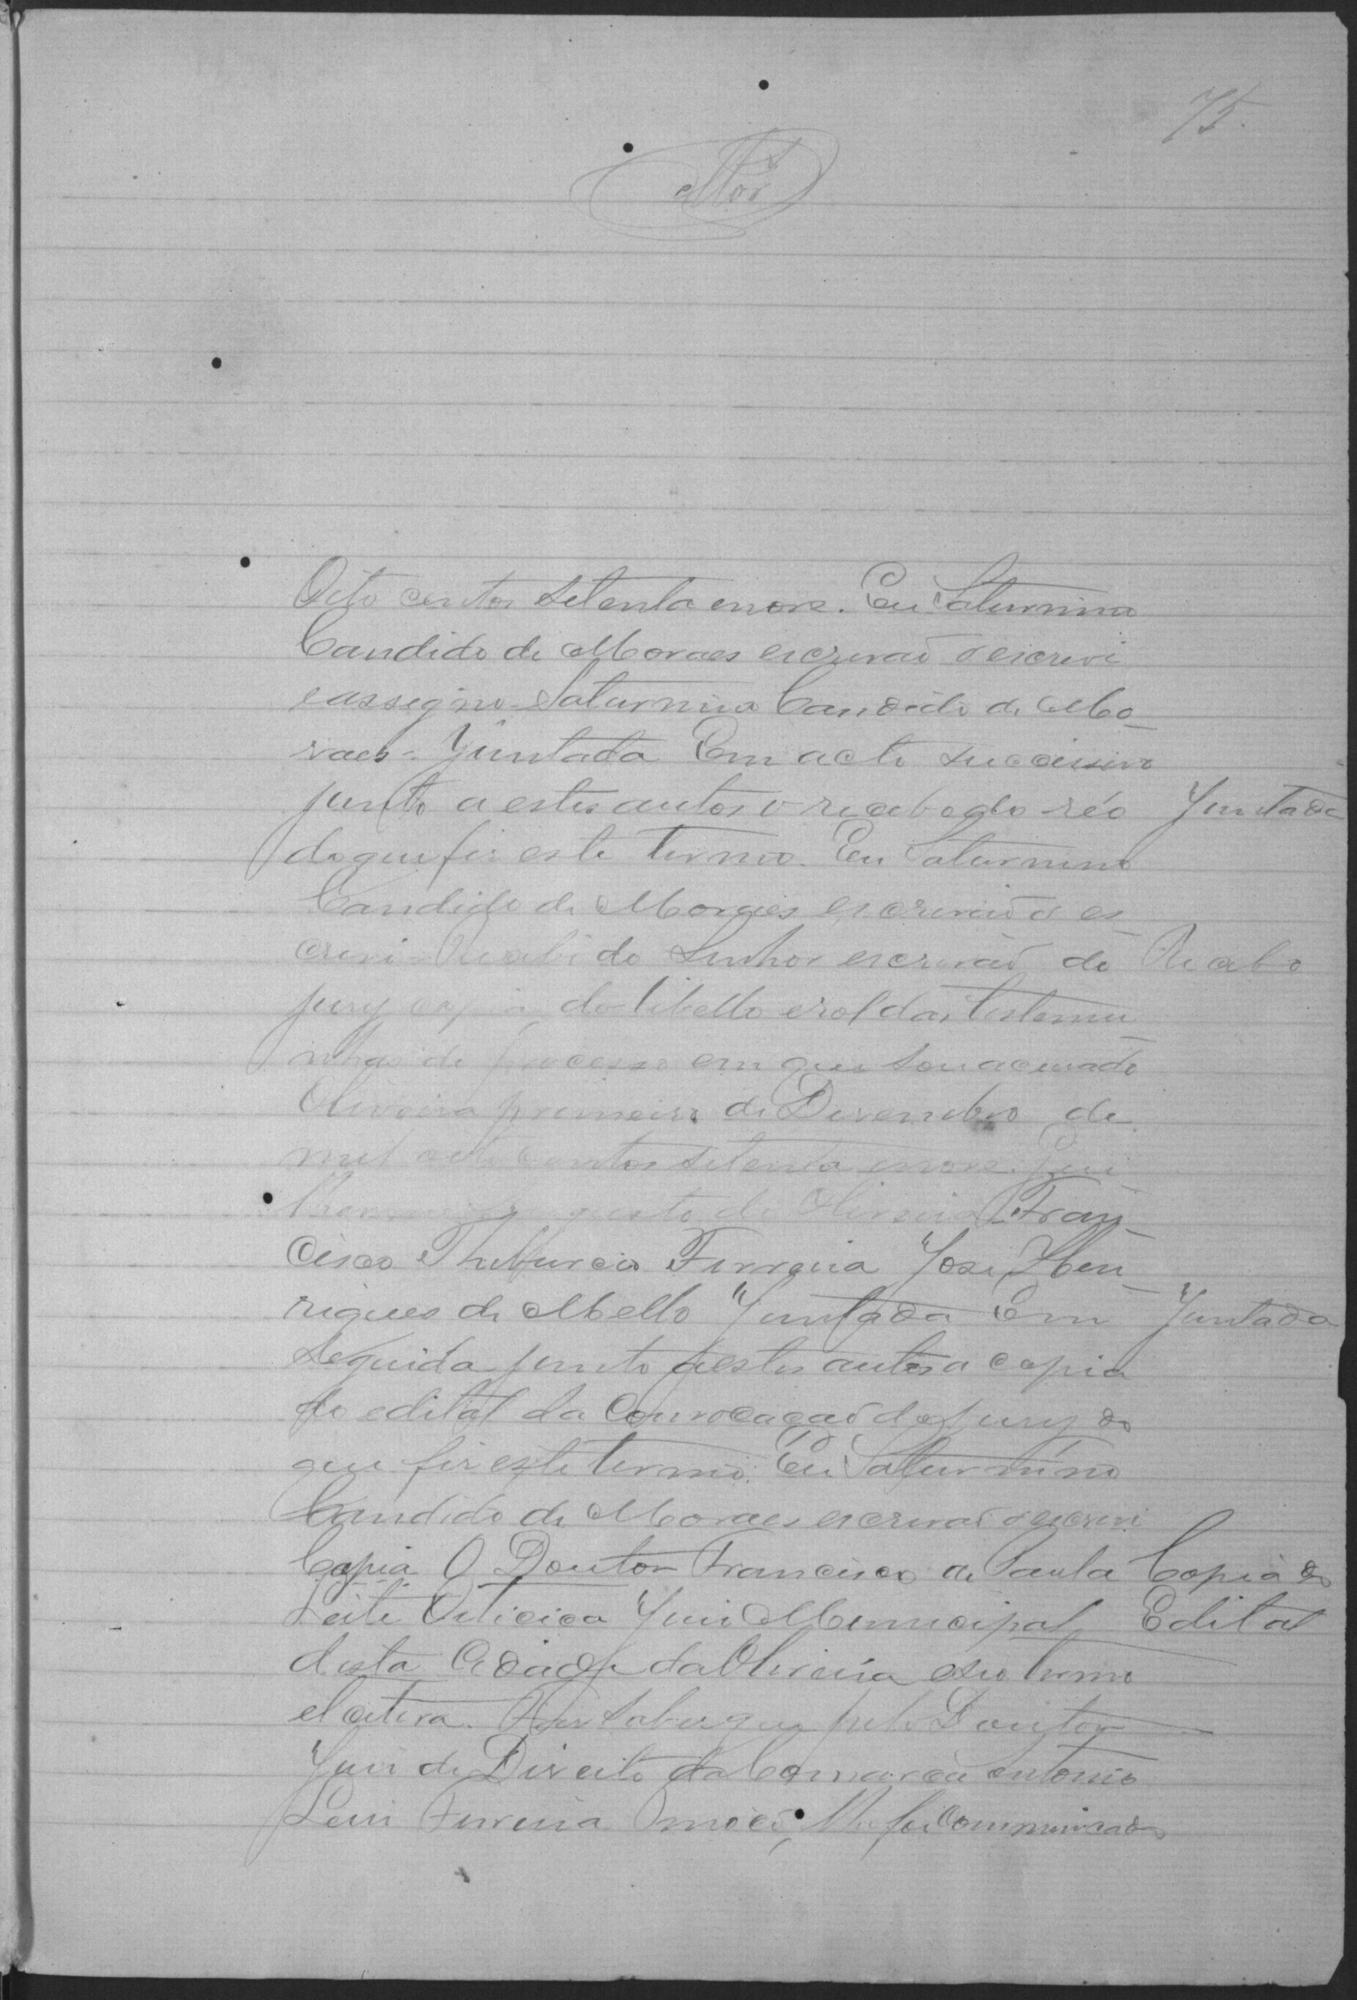 75.
Oito centos setenta enove. Eu Saturnino
Candido de Moraes escrivaõ o escrevi
eassegno Saturnino Candido de Mo-
raes - Juntada Em acto successivo
junto a estes autos o recibo do réo Juntada
do que fis este termo. Eu Saturnino
Candido de Moraes escrivaõ o es
crevi - Recibi do Senhor escrivaõ do Recibo
jury copia do libello erol das testemu
nhas do processo em que sou acusado
Oliveira primeiro de Desembro de
mil oito centos setenta enove.
Augusto de Oliveira Fran-
cisco Theburcio Ferreira José Hen-
riques de Mello Juntada Em Juntada
Seguida junto aestes autos a copia
do edital da Convocaçaõ do Jury do
que fis este termo. Eu Saturnino
Candido de Moraes escrivaõ o escrevi
Copia O Doutor Francisco de Paula Copia do
Leite Oiticica Juis Municipal Edital
desta Cidade da Oliveira eseo termo
et cetera. Fas saber que pelo Doutor
Juis de Direito da Comarca Antonio
Luis Ferreira Me foi Communicado